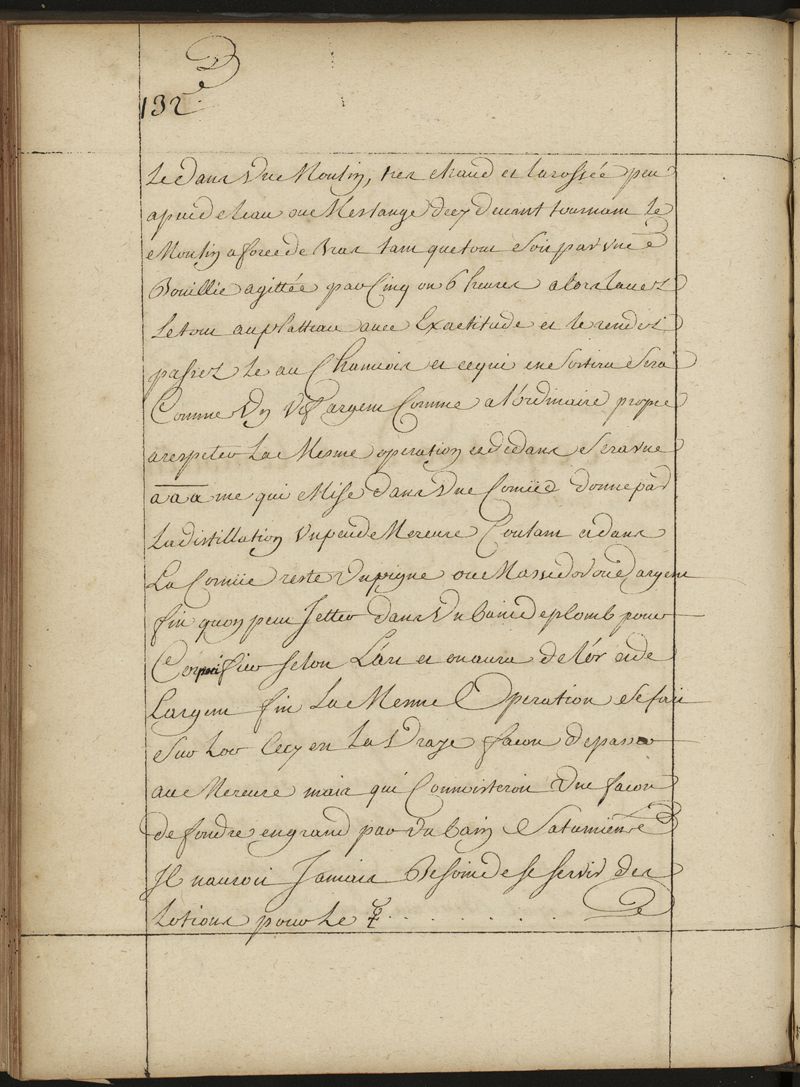 132e
Le dans Une Moulin, tres chaud et larossée peu
apeu de leau ou Meslange dicy devant tournant le
Moulin a force de Bras tam quetout Soit par une
Bouillie agittée par Cinq ou 6 heures alors lavez
Letout auplatteau avec Exactitude et le rendez
passez le au Chamois et cequi en Sortira Sera
Comme Un Vif argent Comme a l'ordinaire propre
arespeter La Mesme operation et dedans Sera une
aaa me qui Mise dans Une Cornüe donne par
La distillation Unpeu de Mercure Coulant et dans
La Cornüe reste Unpigne ou Masse dor ou dargent
fin quon peut Jetter dans Un bain de plomb pour
Corpifier selon L'art et on aura de lór et de
Largent fin La Mesme Operation Se fait
Sur Lor Cecy en La Vraye facon de passer
au Mercure mais qui Connoisteroit Une facon
de fondre en grand par Un bain Saturnien
Il nauroit Jamais Besoin de se servir des
Lotions pour Le ☿ . . . . . . .